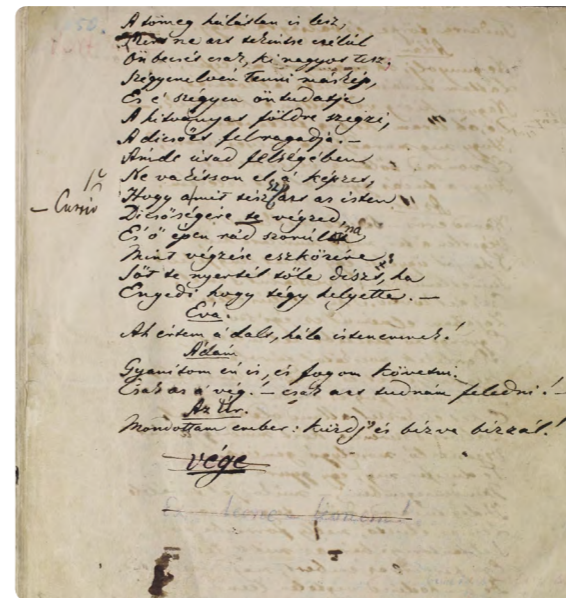 A tömeg hálátlan is lesz,
ne azt tekintse célúl
Önbecsét csak, ki nagyot tesz,
Szégyenelven tenni máskép,
És e szégyen öntudatja
A hitványat földre szegzi,
A dicsőt felragadja. –
Ámde útad felségében
Ne vakítson el, a képzet,
– Cursiv
Hogy a mit téssz azt az isten
Dicsőségére te végzed,
És ő épen rád szorúlna
Mint végzése eszközére,
Sőt te nyertél tőle díszt, ha
Engedi, hogy tégy helyette. –
Éva.
Ah értem a dalt, hála istenemnek!
Ádám
Gyanítom én is, és fogom követni.
Csak az a vég! – csak azt tudnám feledni! –
Az Úr.
Mondottam ember: küzdj' és bízva bízzál!
vége